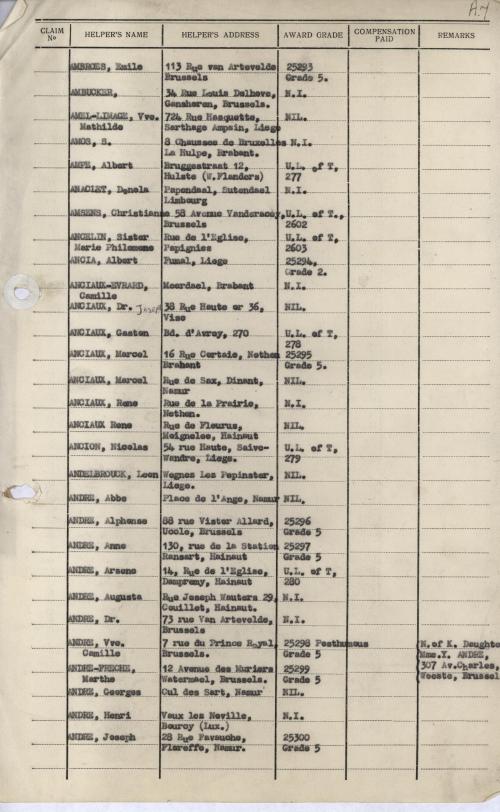 A.7
CLAIM No HELPER'S NAME HELPER'S ADDRESS AWARD GRADE COMPENSATION PAID REMARKS
AMBROES, Emile 113 Rue van Artevelde 25293
Brussels Grade 5.
AMBUCKER, 34 Rue Louis Delhove, N.I.
Ganshoren, Brussels.
AMEL-LIMAGE, Vve. 724 Rue Hasquette, NIL.
Mathilde Sarthage Ampain, Liege
AMOS, S. 8 Chausses de Bruxelles N.I.
La Hulpe, Brabant.
AMPE, Albert Bruggestraat 12, U.L. of T,
Hulste (W.Flanders) 277
ANACLET, Donela Papendaal, Sutendael N.I.
Limbourg
AMSENS, Christianne 58 Avenue Vanderaey, U.L. of T.,
Brussels 2602
ANCELIN, Sister Rue de l'Eglise, U.L. of T,
Marie Philomene Papignies 2603
ANCIA, Albert Fumal, Liege 25294,
Grade 2.
ANCIAUX-EVRARD, Meerdael, Brabant N.I.
Camille
ANCIAUX, Dr. Joseph 38 Rue Haute or 36, NIL.
Vise
ANCIAUX, Gaston Bd. d'Avroy, 270 U.L. of T,
278
ANCIAUX, Marcel 16 Rue Certaie, Nethen 25295
Brabant Grade 5.
ANCIAUX, Marcel Rue de Sax, Dinant, NIL.
Namur
ANCIAUX, Rene Rue de la Prairie, N.I.
Nethen.
ANCIAUX Rene Rue de Fleurus, NIL.
Moignelee, Hainaut
ANCION, Nicolas 54 rue Haute, Saive- U.L. of T,
Wandre, Liege. 279
ANDELBROUCK, Leon Wegnes Les Pepinster, NIL.
Liege.
ANDRE, Abbe Place de l'Ange, Namur NIL.
ANDRE, Alphonse 88 rue Vister Allard, 25296
Uccle, Brussels Grade 5
ANDRE, Anne 130, rue de la Station 25297
Ransart, Hainaut Grade 5
ANDRE, Arsene 14, Rue de l'Eglise, U.L. of T,
Dampremy, Hainaut 280
ANDRE, Augusta Rue Joseph Wauters 29, N.I.
Couillet, Hainaut.
ANDRE, Dr. 73 rue Van Artevelde, N.I.
Brussels
ANDRE, Vve. 7 rue du Prince Royal, 25298 Posthumous (N.of K. Daughte
Camille Brussels. Grade 5 (Mme.Y. ANDRE,
ANDRE-FRECHE, 12 Avenue des Muriers 25299 (307 Av.Charles,
Marthe Watermael, Brussels. Grade 5 (Woeste, Brussel
ANDRE, Georges Cul des Sart, Namur NIL.
ANDRE, Henri Vaux les Noville, N.I.
Bourcy (Lux.)
ANDRE, Joseph 28 Rue Favauche, 25300
Floreffe, Namur. Grade 5